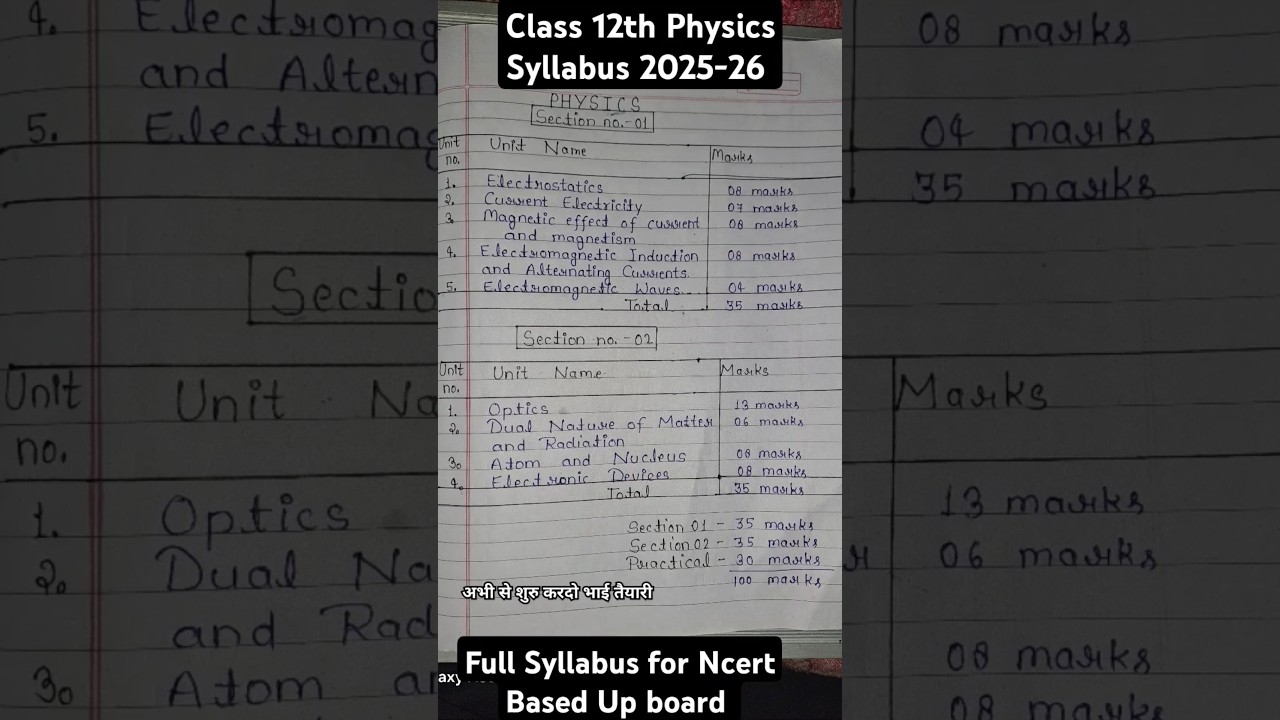 Class 12th Physics
Syllabus 2025-26
PHYSICS
Section no.-01
Unit no. Unit Name Marks
1. Electrostatics 08 marks
2. Current Electricity 07 marks
3. Magnetic effect of current 08 marks
and magnetism
4. Electromagnetic Induction 08 marks
and Alternating Currents.
5. Electromagnetic Waves. 04 marks
Total 35 marks
Section no. -02
Unit no. Unit Name Marks
1. Optics 13 marks
2. Dual Nature of Matter 06 marks
and Radiation
3. Atom and Nucleus 08 marks
4. Electronic Devices 08 marks
Total 35 marks
Section 01 - 35 marks
Section 02 - 35 marks
Practical - 30 marks
100 marks
अभी से शुरु करदो भाई तैयारी
Full Syllabus for Ncert
Based Up board